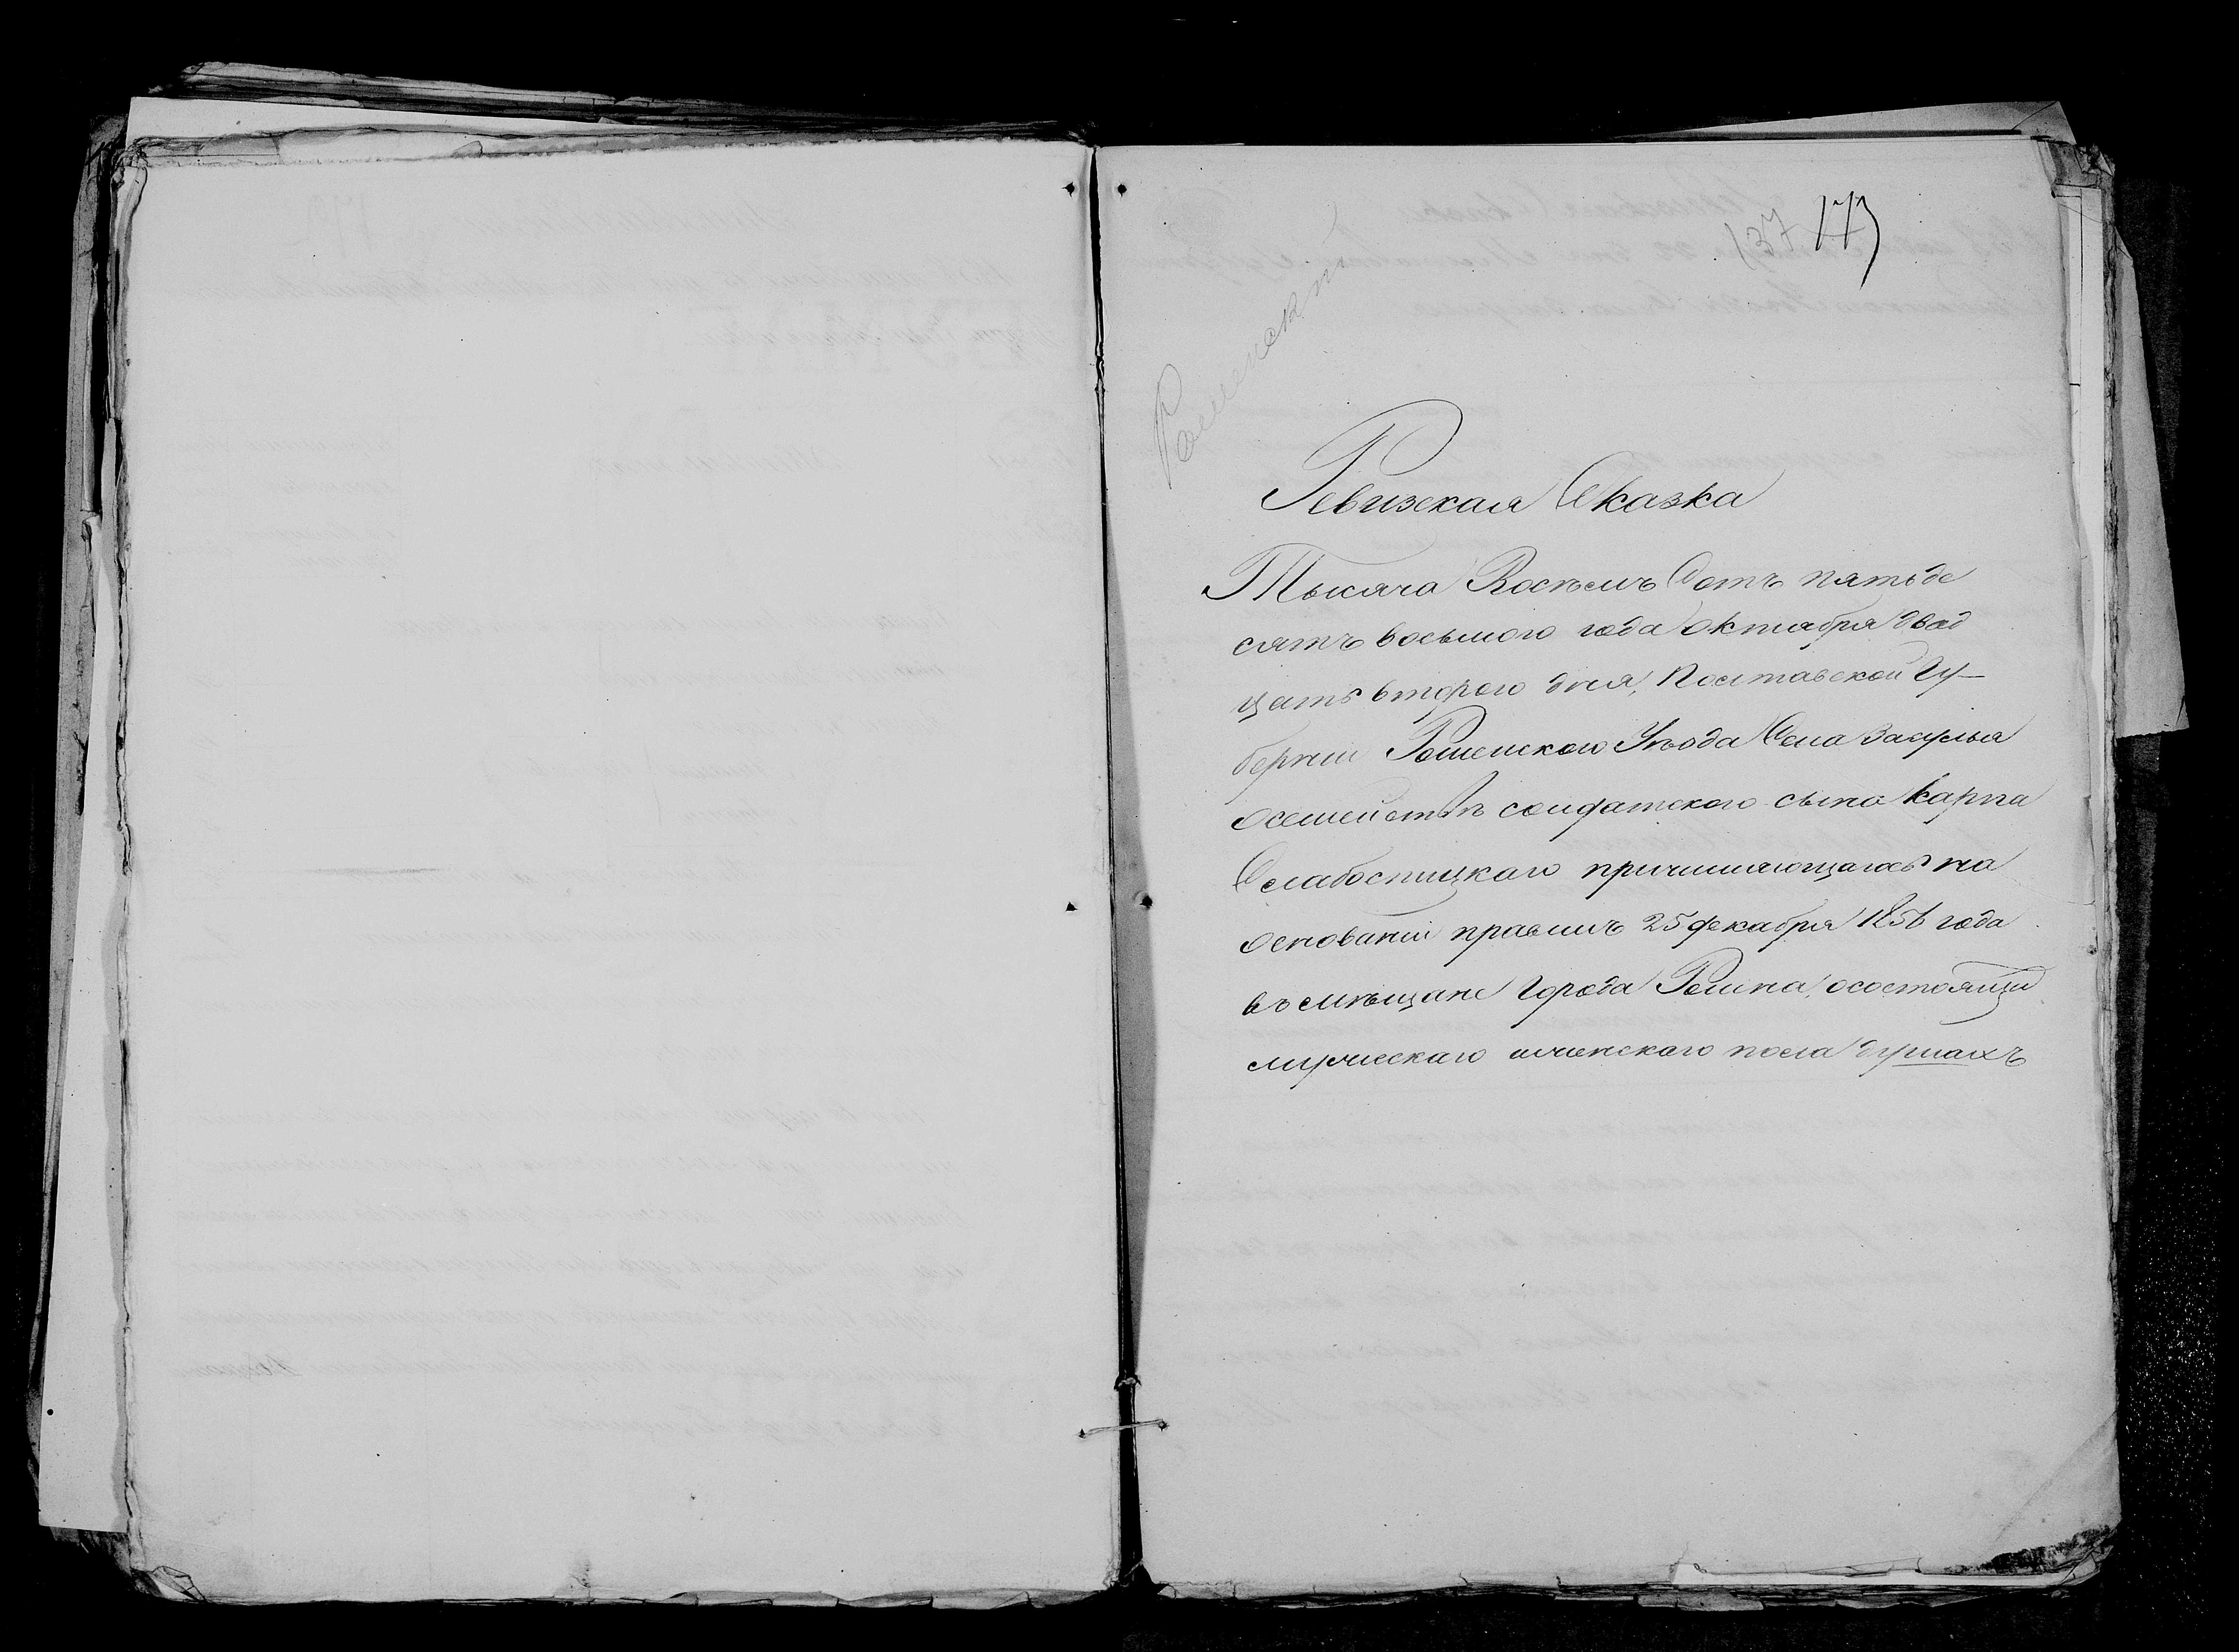 137 173
Роменскій
Ревизская Сказка
Тысяча Восѣмъ Сотъ пятьде
сятъ восьмого года октября двад
цать второго дня, Полтавской Гу-
берніи Роменского Уѣзда Села
осемействѣ солдатского сына Карпа
Слабоспицкаго причисляющагось на
основаніи правилъ 25 декабря 1856 года
въ мѣщане города Ромна, осостоящи
мужескаго иженского пола душахъ